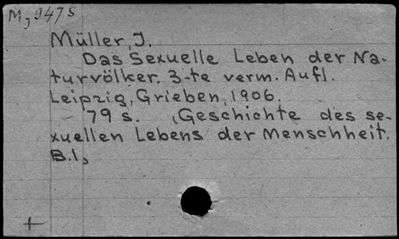 M,9475
Müller, J.
Das Sexuelle Leben der Na-
turvölker. 3-te verm. Aufl.
Leipzig, Grieben, 1906.
79 s. (Geschichte des se-
xuellen Lebens der Menschheit.
B.1,
+